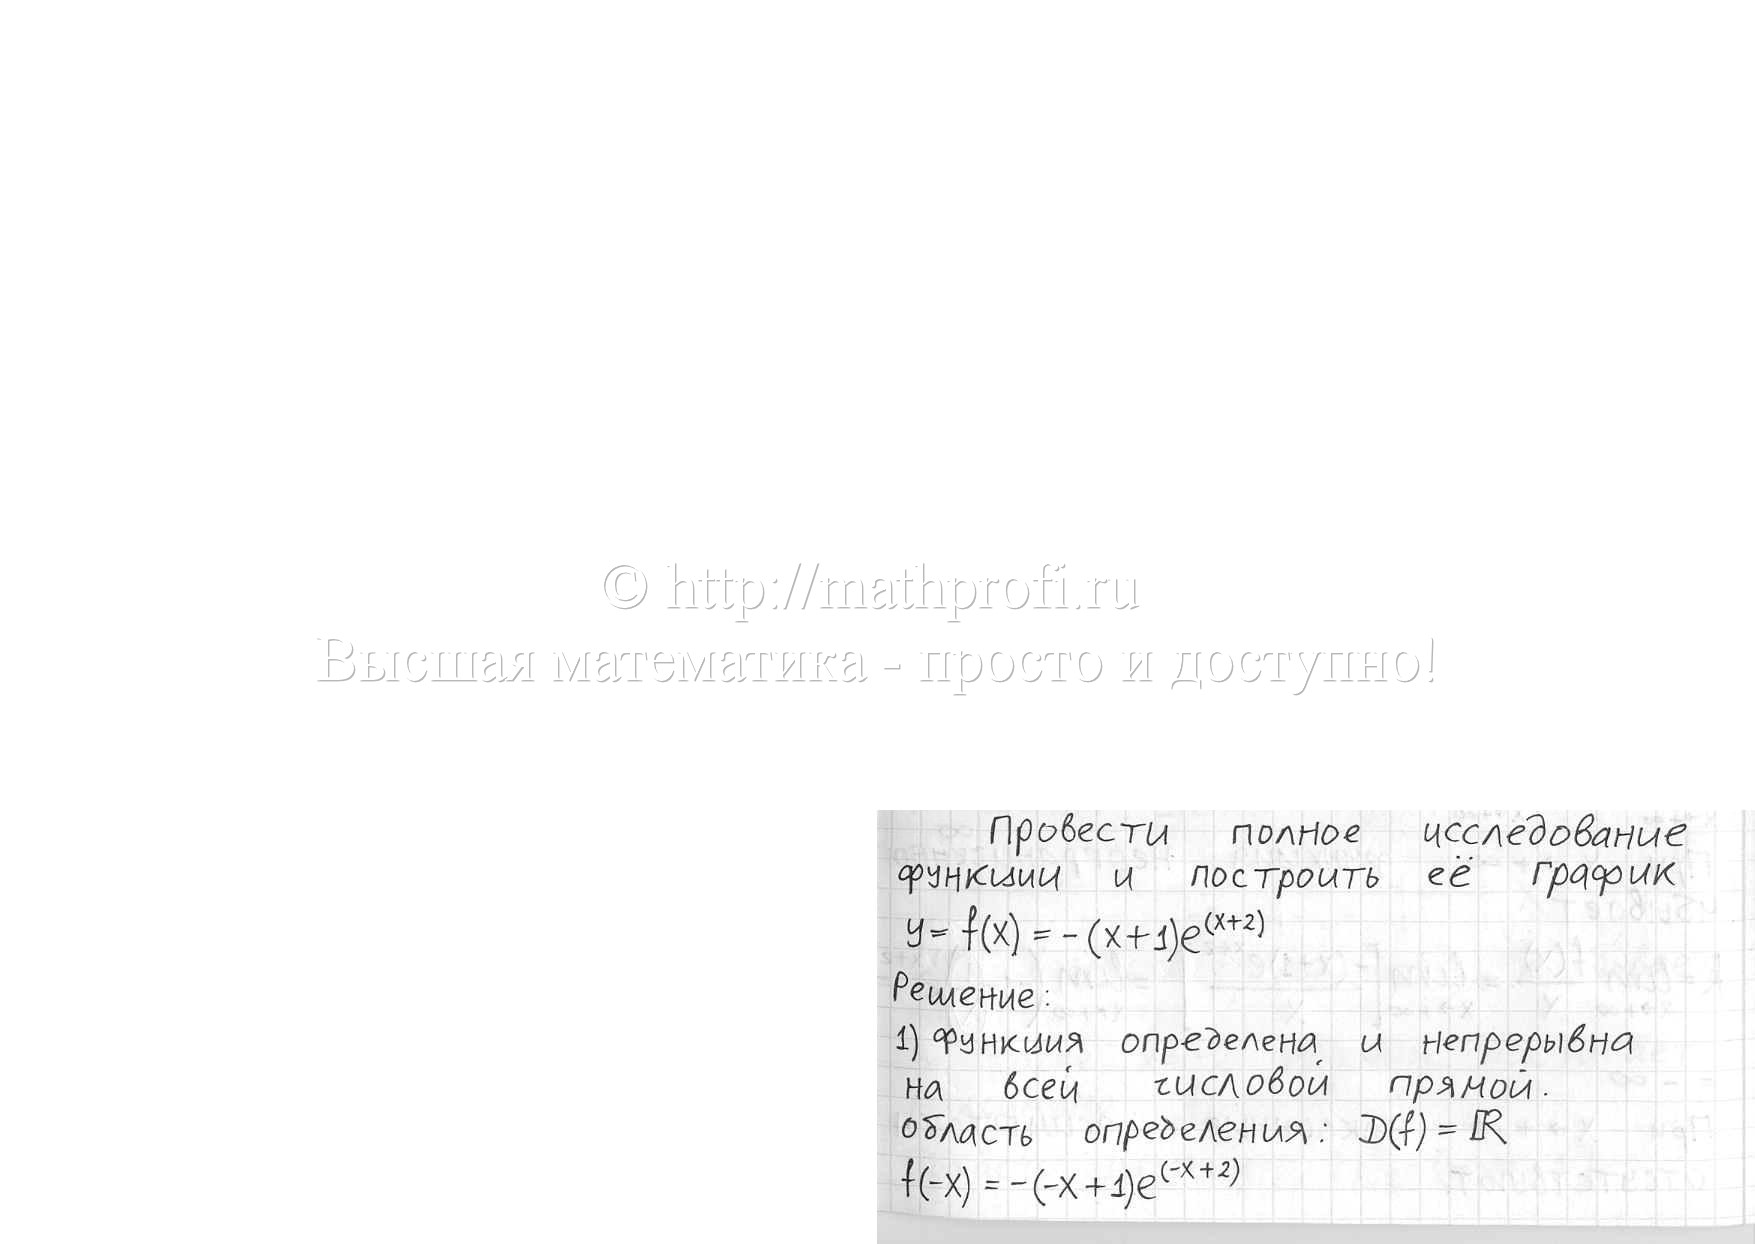 © http://mathprofi.ru
Высшая математика - просто и доступно!
Провести полное исследование
функции и построить её график
y = f(x) = -(x+1)e^(x+2)
Решение:
1) Функция определена и непрерывна
на всей числовой прямой.
область определения: D(f) = ℝ
f(-x) = -(-x+1)e^(-x+2)